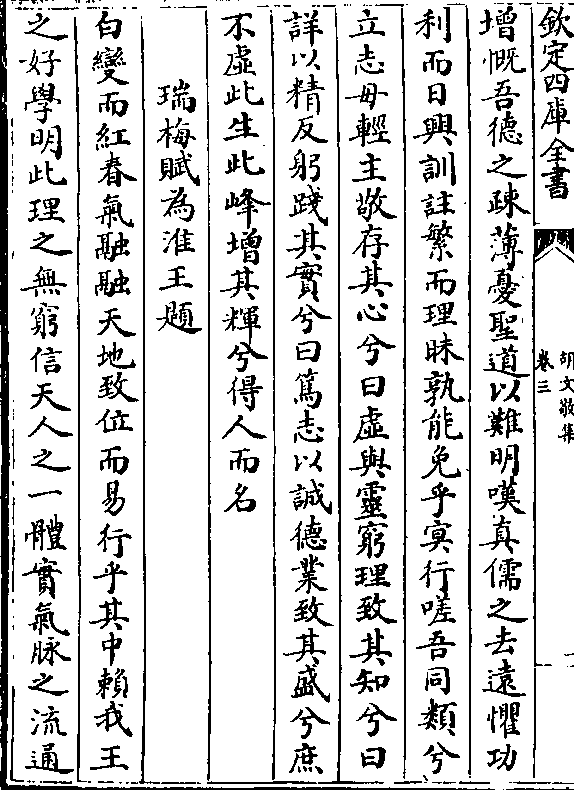 欽定四庫全書
胡文敬集
卷三
增慨吾德之疎薄憂聖道以難明嘆真儒之去遠懼功
利而日興訓註繁而理昧孰能免乎冥行嗟吾同類兮
立志毋輕主敬存其心兮曰虛與靈窮理致其知兮曰
詳以精反躬踐其實兮曰篤志以誠德業致其盛兮庶
不虛此生此峰增其輝兮得人而名
瑞梅賦為淮王題
白變而紅春氣融融天地致位而易行乎其中賴我王
之好學明此理之無窮信天人之一體實氣脉之流通